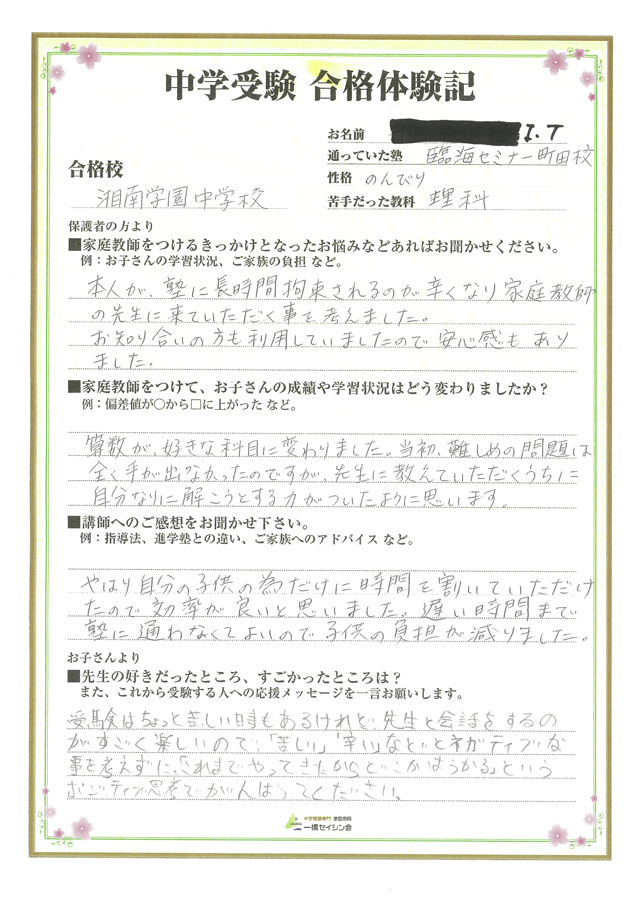 中学受験 合格体験記
お名前 I.T
通っていた塾 臨海セミナー町田校
合格校
性格 のんびり
湘南学園中学校
苦手だった教科 理科
保護者の方より
■家庭教師をつけるきっかけとなったお悩みなどあればお聞かせください。
例：お子さんの学習状況、ご家族の負担 など。
本人が、塾に長時間拘束されるのが辛くなり家庭教師
の先生に来ていただく事を考えました。
お知り合いの方も利用していましたので安心感もあり
ました.
■家庭教師をつけて、お子さんの成績や学習状況はどう変わりましたか？
例：偏差値が○から□に上がった など。
算数が、好きな科目に変わりました。当初、難しめの問題は
全く手が出なかったのですが、先生に教えていただくうちに
自分なりに解こうとする力がついたように思います。
■講師へのご感想をお聞かせ下さい。
例：指導法、進学塾との違い、ご家族へのアドバイス など。
やはり自分の子供の為だけに時間を割いていただけ
たので効率が良いと思いました。遅い時間まで
塾に通わなくてよいので子供の負担が減りました。
お子さんより
■先生の好きだったところ、すごかったところは？
また、これから受験する人への応援メッセージを一言お願いします。
受験はちょっと苦しい時もあるけれど先生と会話をするの
がすごく楽しいので、「苦しい」「辛い」などとネガティブな
事を考えずに、「これまでやってきたからどこかはうかる」という
ポジティブ思考でがんばってください。
中学受験専門 家庭教師
一橋セイシン会